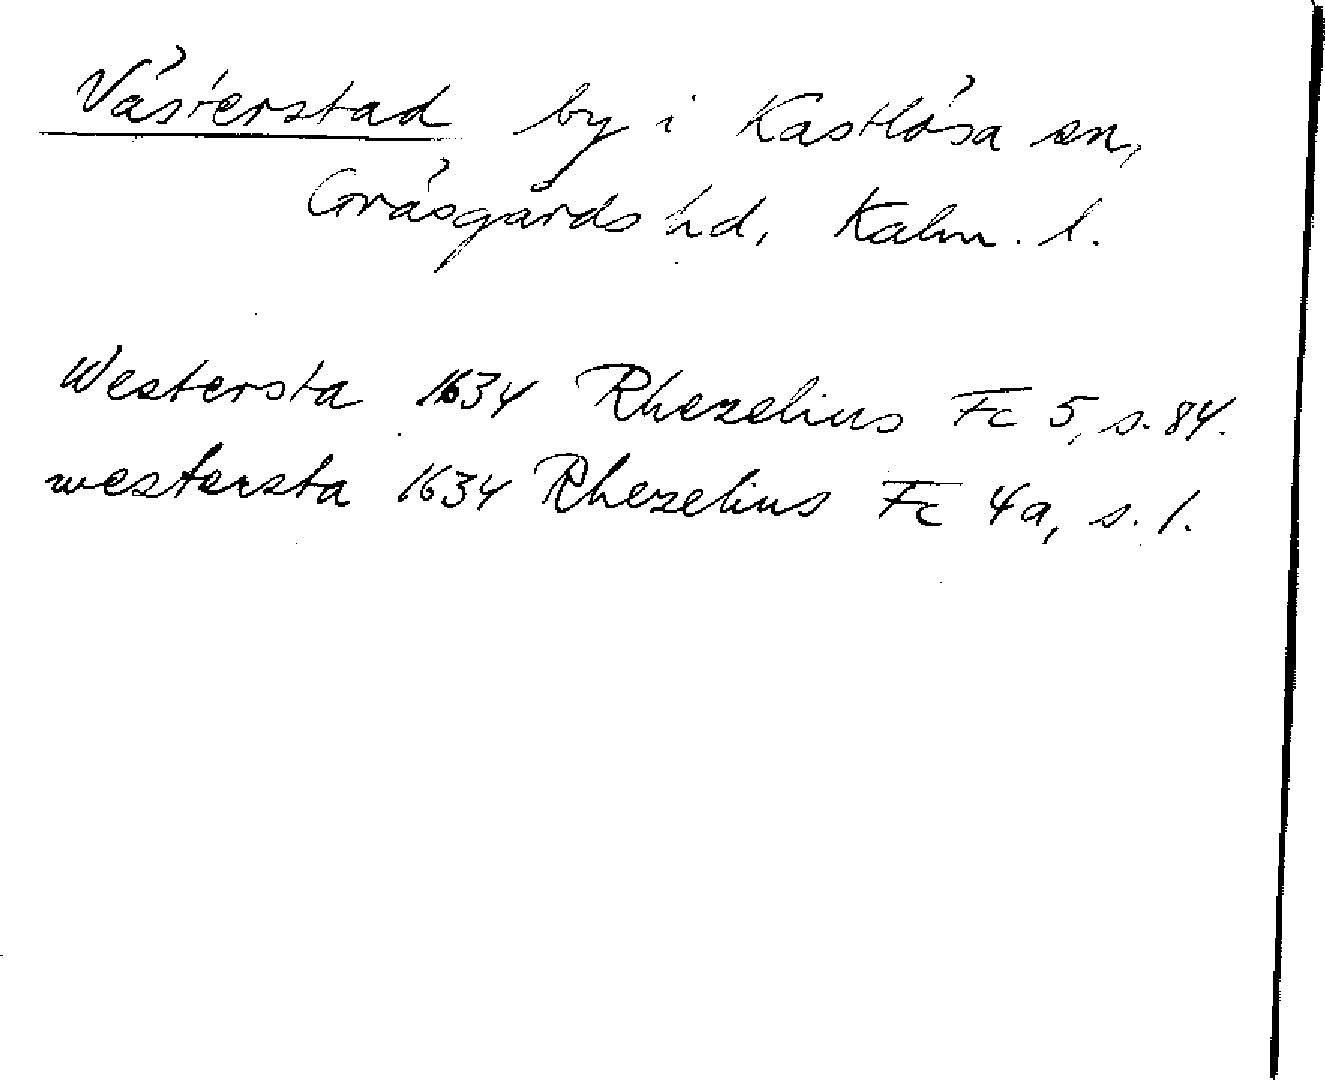 Västerstad by i Kastlösa sn,
Gräsgårds hd, Kalm. l.
Westersta 1634 Rhezelius Fc 5, s. 84.
westersta 1634 Rhezelius Fc 4a, s. 1.